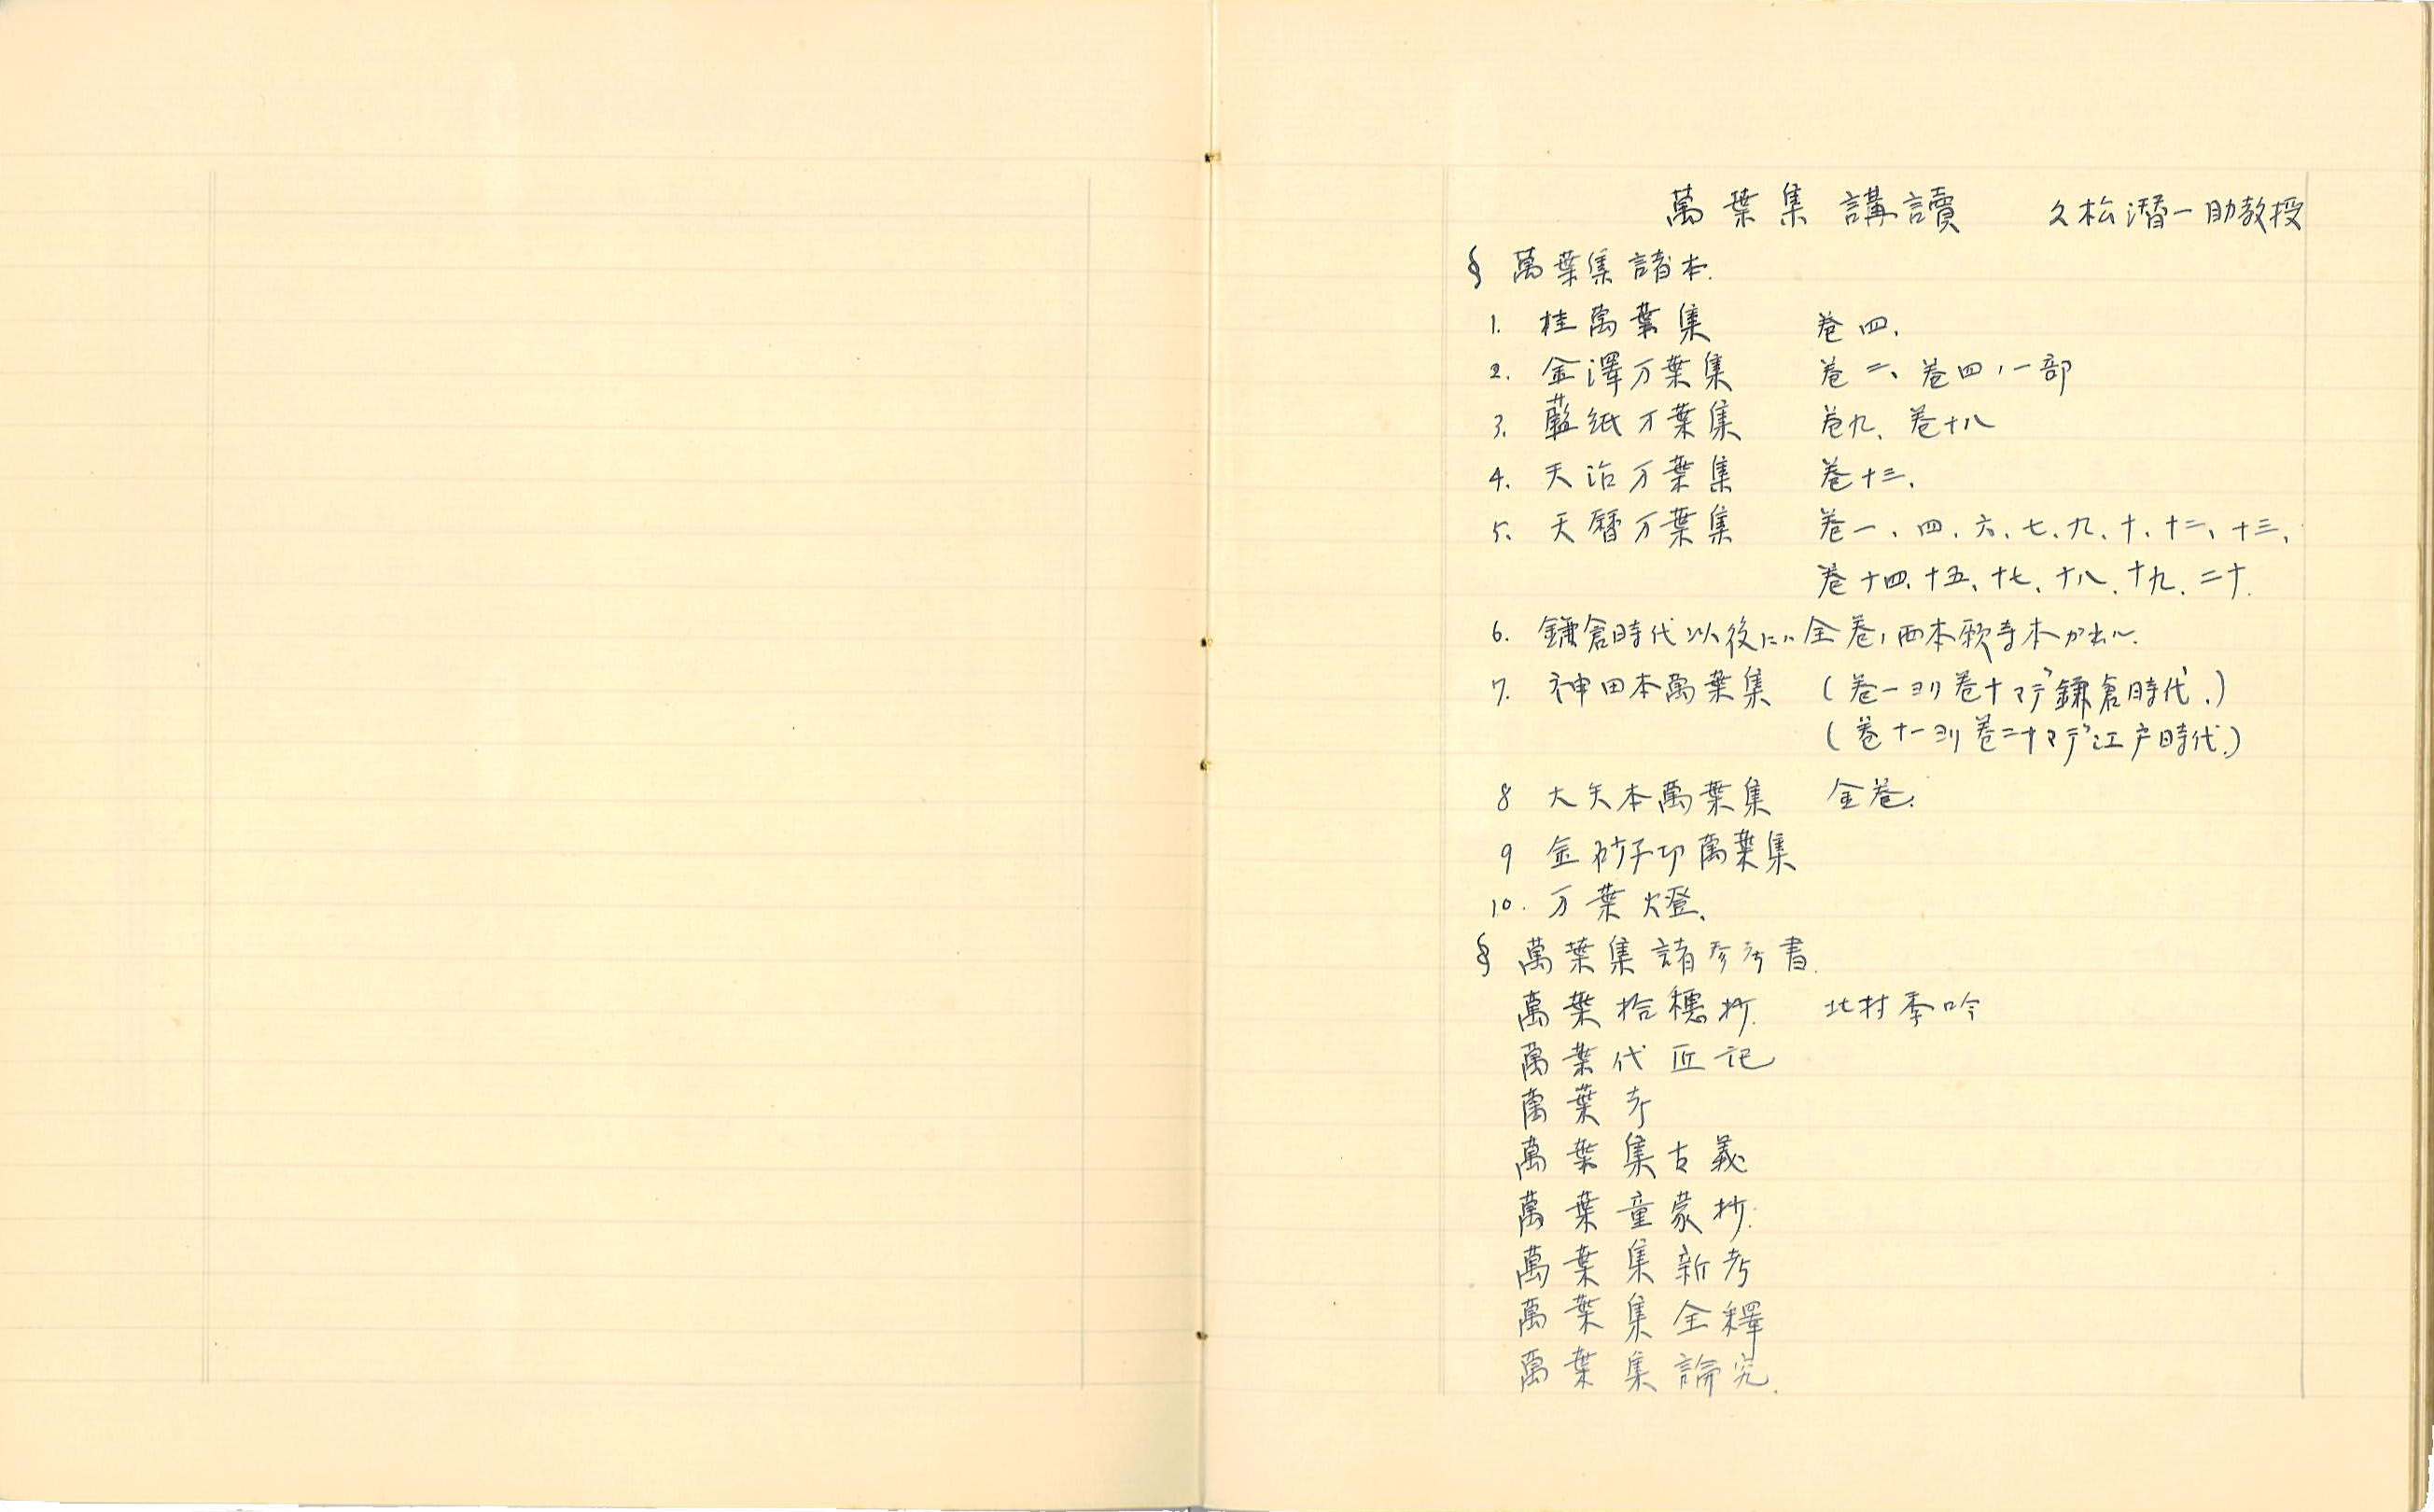 萬葉集講讀　久松潛一助教授
§ 萬葉集諸本.
1. 桂萬葉集　巻四、
2. 金澤万葉集　巻二、巻四ノ一部
3. 藍紙万葉集　巻九、巻十八
4. 天治万葉集　巻十三、
5. 天暦万葉集　巻一、四、六、七、九、十、十二、十三、
巻十四、十五、十七、十八、十九、二十.
6. 鎌倉時代以後ニハ全巻ノ西本願寺本ガ出ル.
7. 神田本萬葉集　(巻一ヨリ巻十マデ鎌倉時代.)
(巻十一ヨリ巻二十マデ江戸時代.)
8 大矢本萬葉集　全巻.
9 金砂子切萬葉集
10. 万葉燈、
§ 萬葉集諸参考書.
萬葉拾穗抄.　北村季吟
萬葉代匠記
萬葉考
萬葉集古義
萬葉童蒙抄.
萬葉集新考
萬葉集全釋
萬葉集論究.